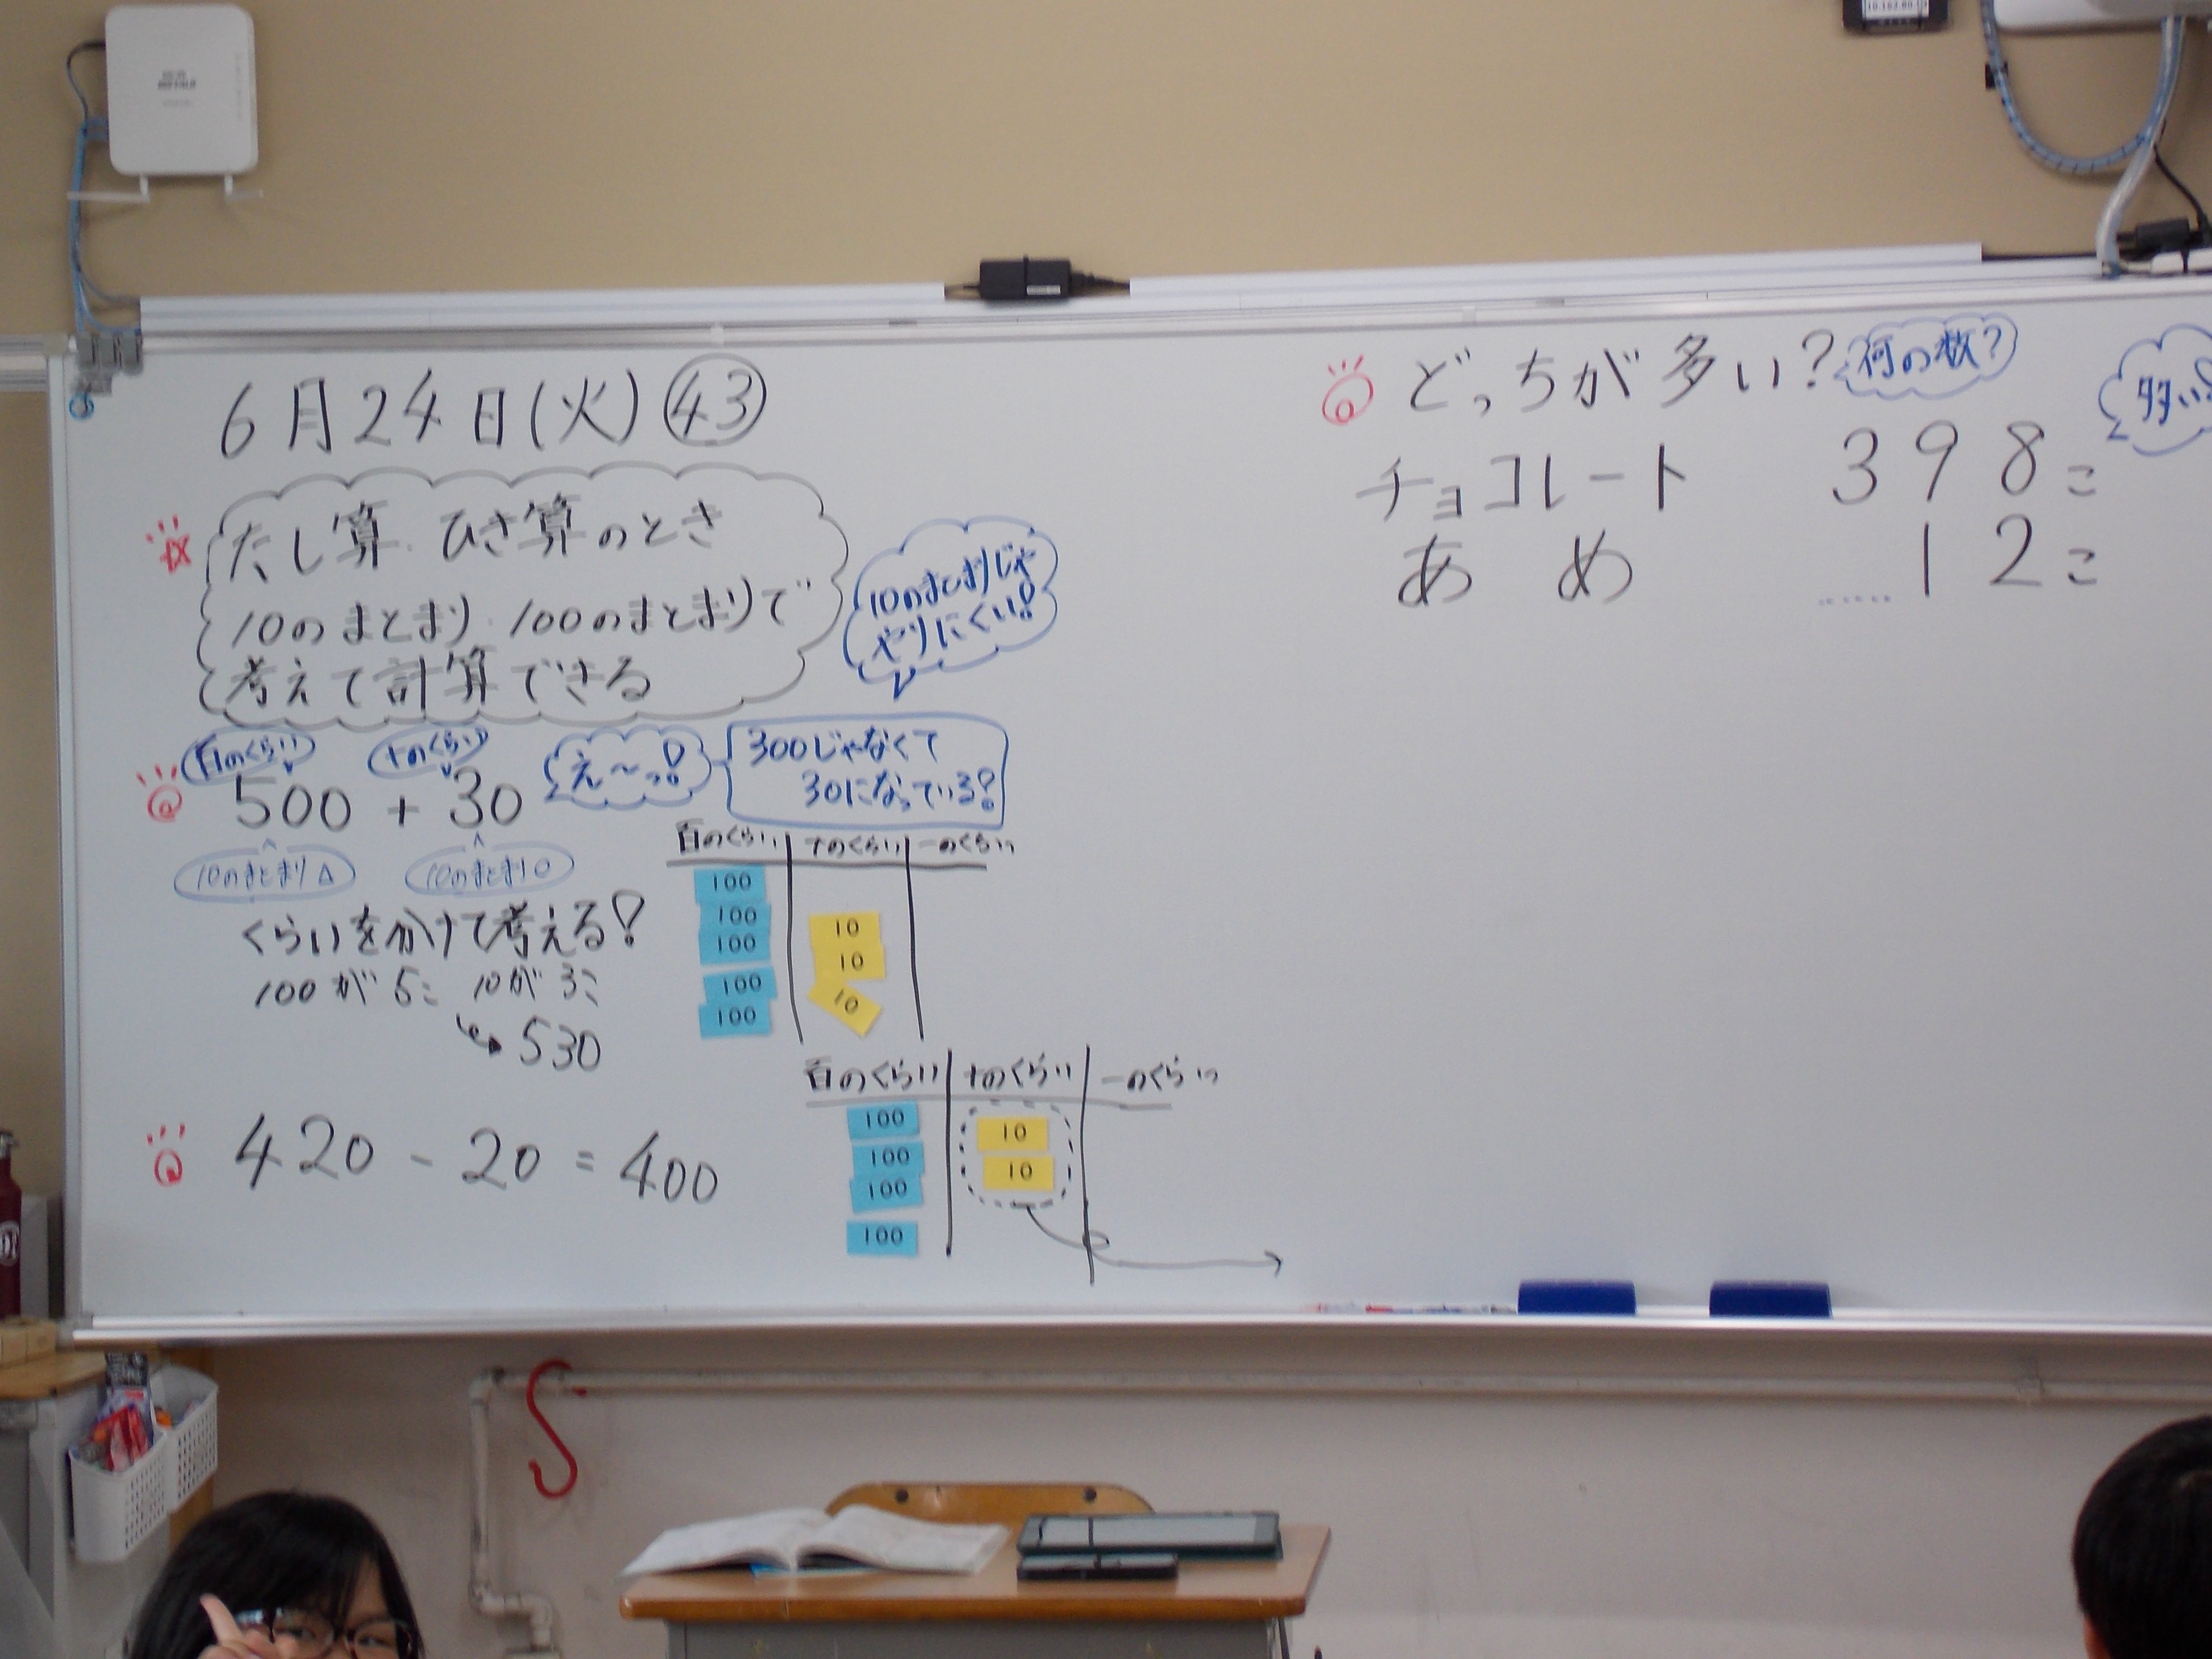 6月24日(火) ㊸
たし算.ひき算のとき
10のまとまり.100のまとまりで
考えて計算できる
10のまとまりじゃ
やりにくい!
百のくらい
十のくらい
500 + 30
え〜っ!
300じゃなくて
30になっている!
10のまとまり△
10のまとまり○
くらいをわけて考える!
100が5こ 10が3こ
530
百のくらい 十のくらい 一のくらい
100
100
100
100
100
10
10
10
420 - 20 = 400
百のくらい 十のくらい 一のくらい
100
100
100
100
10
10
どっちが多い?
何の数?
多い
チョコレート 398こ
あめ 12こ